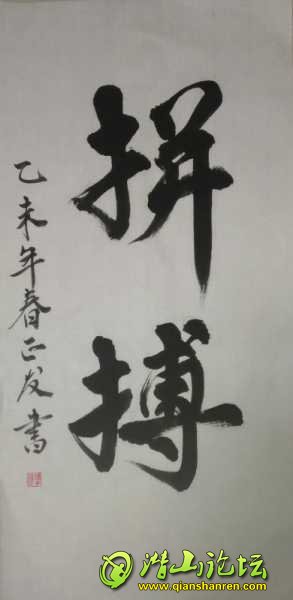 拼搏
乙未年春正发书
潜山论坛
www.qianshanren.com